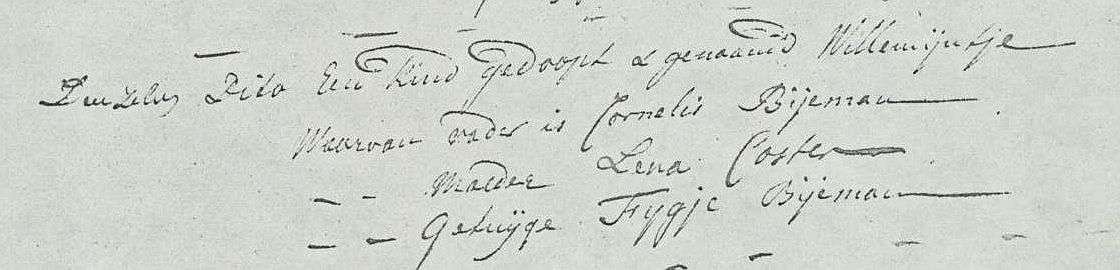 Denzelve Dito Een Kind gedoopt & genaamd Willemijntje
Waarvan vader is Cornelis Bijeman
- - Moeder Lena Coster
- - Getuijge Fygje Bijeman